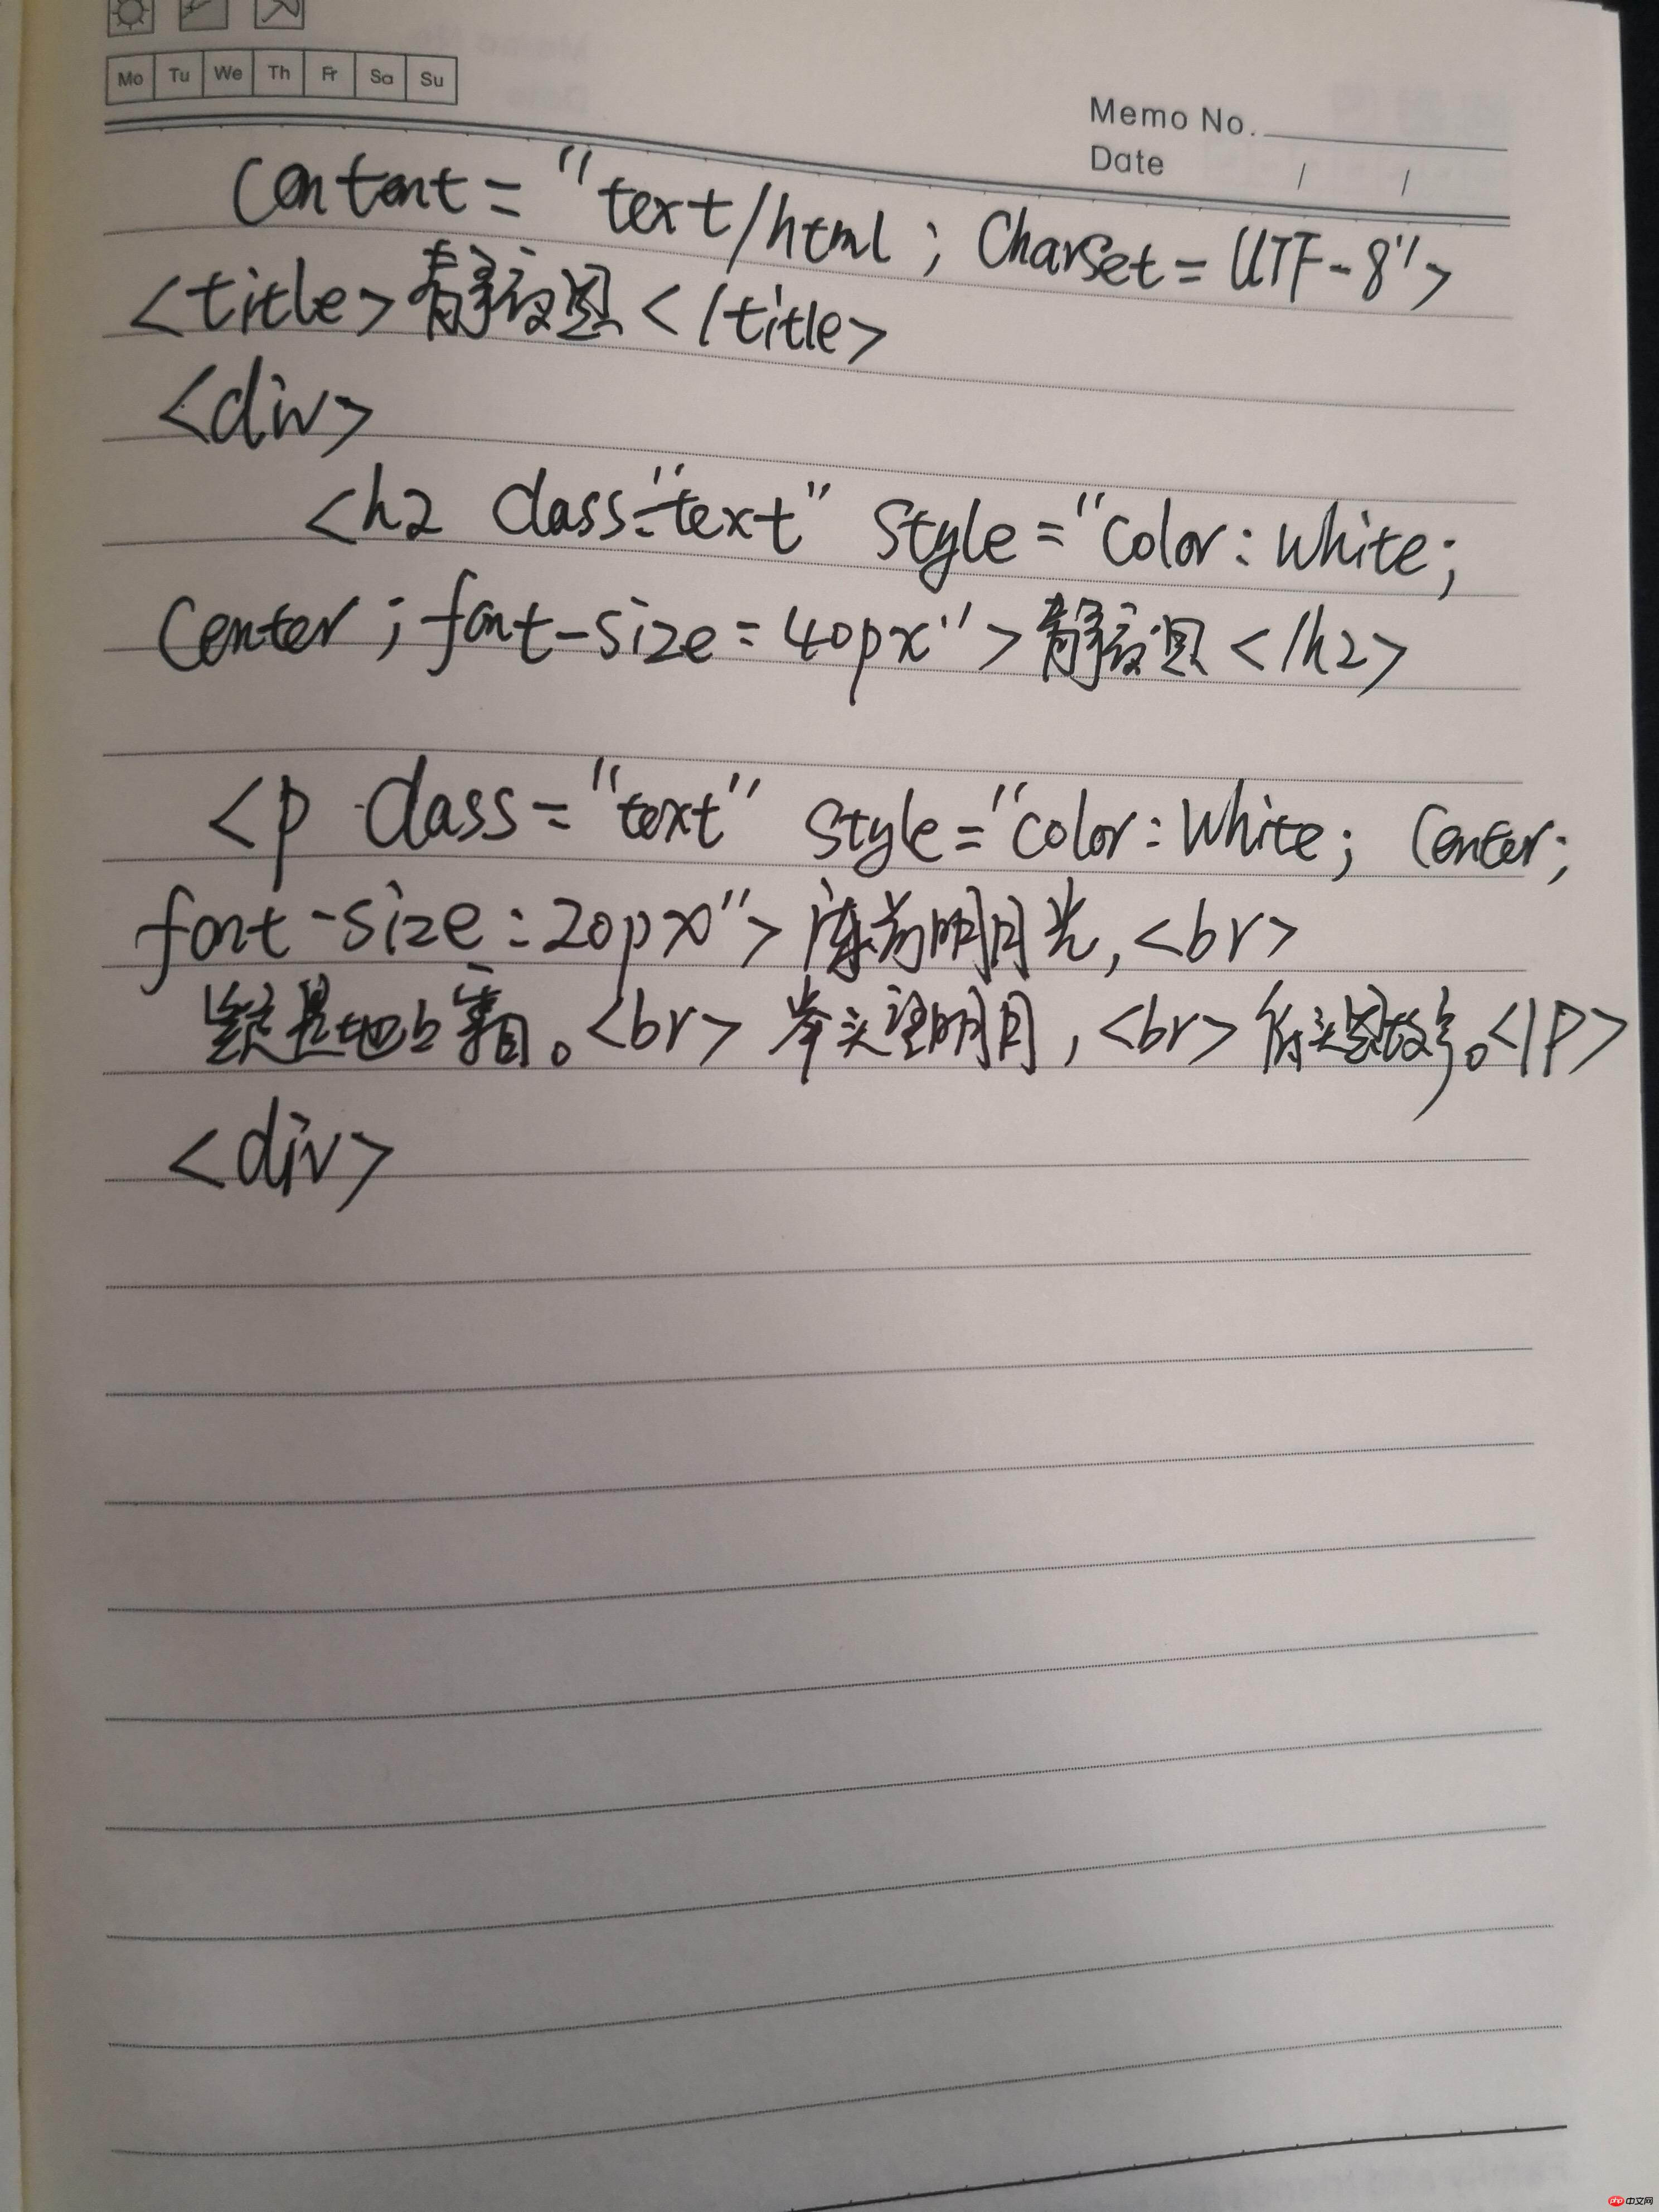 Mo Tu We Th Fr Sa Su
Memo No.
Date / /
Content = "text/html ; Charset = UTF-8">
<title>静夜思</title>
<div>
<h2 class="text" Style="Color: White;
Center ; font-size = 40px">静夜思</h2>
<p class="text" Style="Color: White; Center;
font-size: 20px">床前明月光,<br>
疑是地上霜。<br>举头望明月,<br>低头思故乡。</P>
<div>
php 中文网